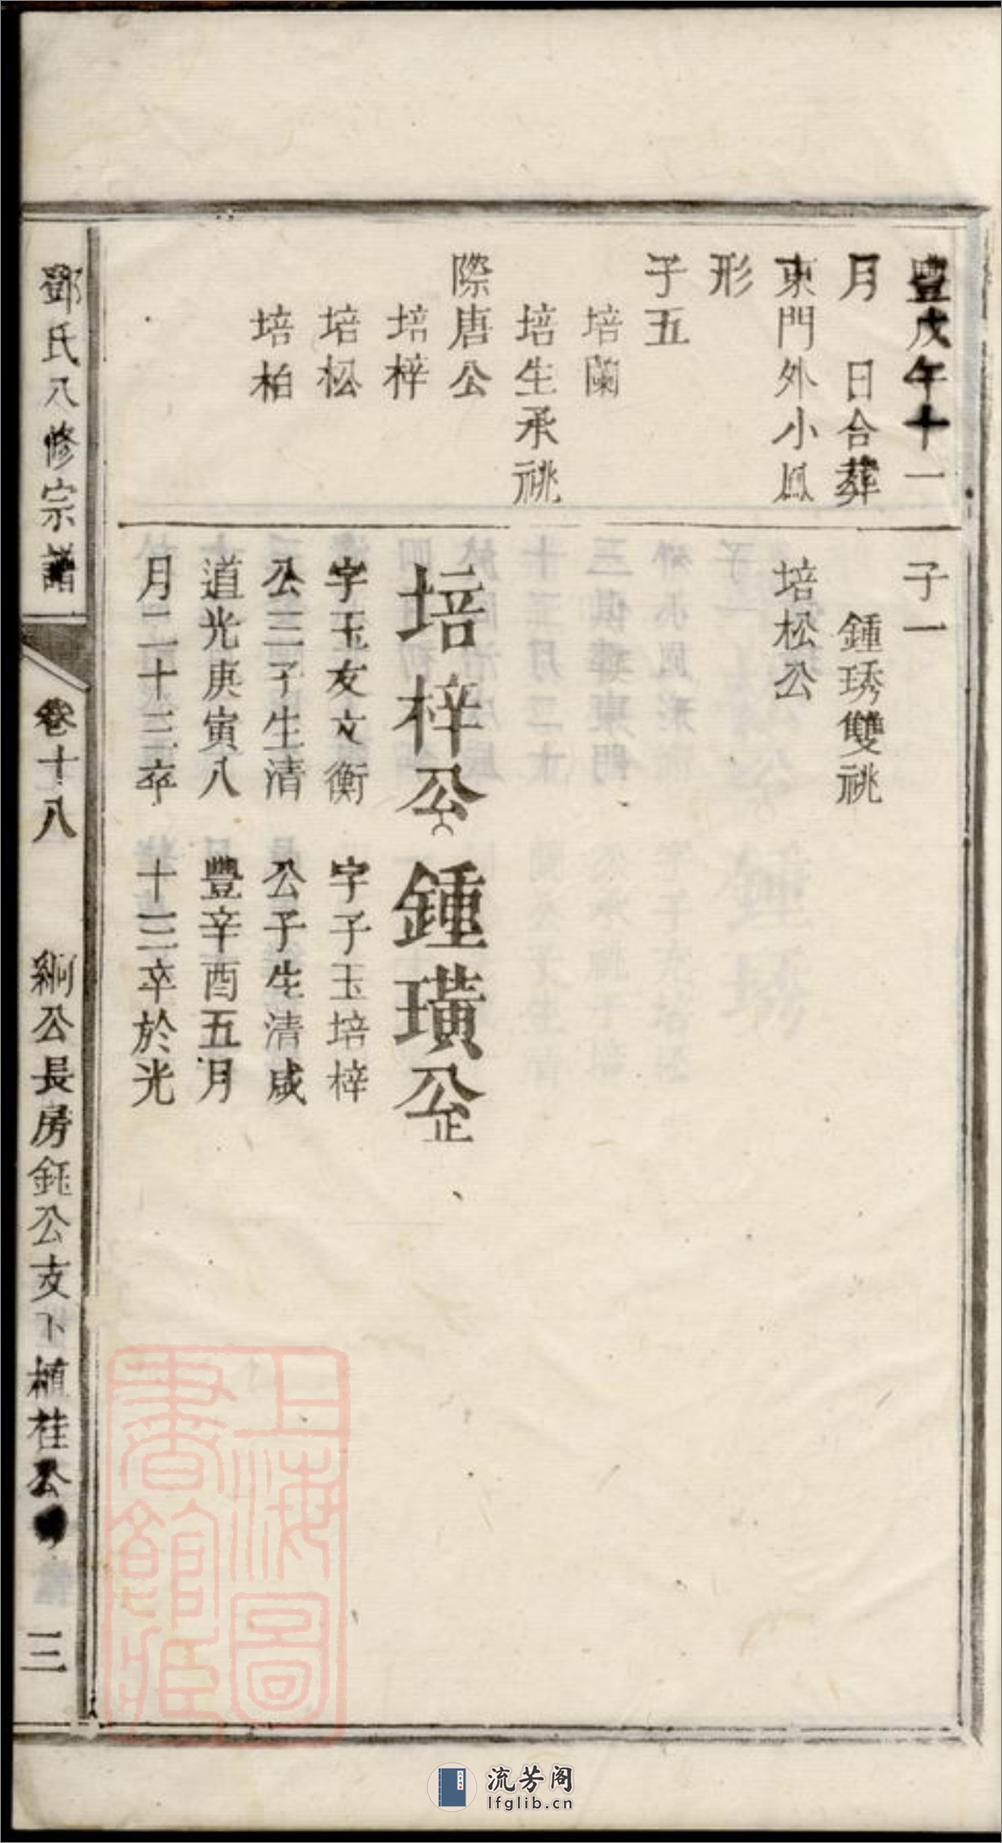 豐戊午十一
月　日合葬
東門外小鳳
形
子五
培蘭
培生承祧
際唐公
培梓
培松
培柏
子一
鍾琇雙祧
培松公
培梓公
字玉友文衡
公三子生清
道光庚寅八
月二十三卒
鍾璜公正
字子玉培梓
公子生清咸
豐辛酉五月
十三卒於光
鄧氏八修宗譜
卷十八
綱公長房鈺公支下植桂公
三
上海圖書館藏
流芳阁
lfglib.cn